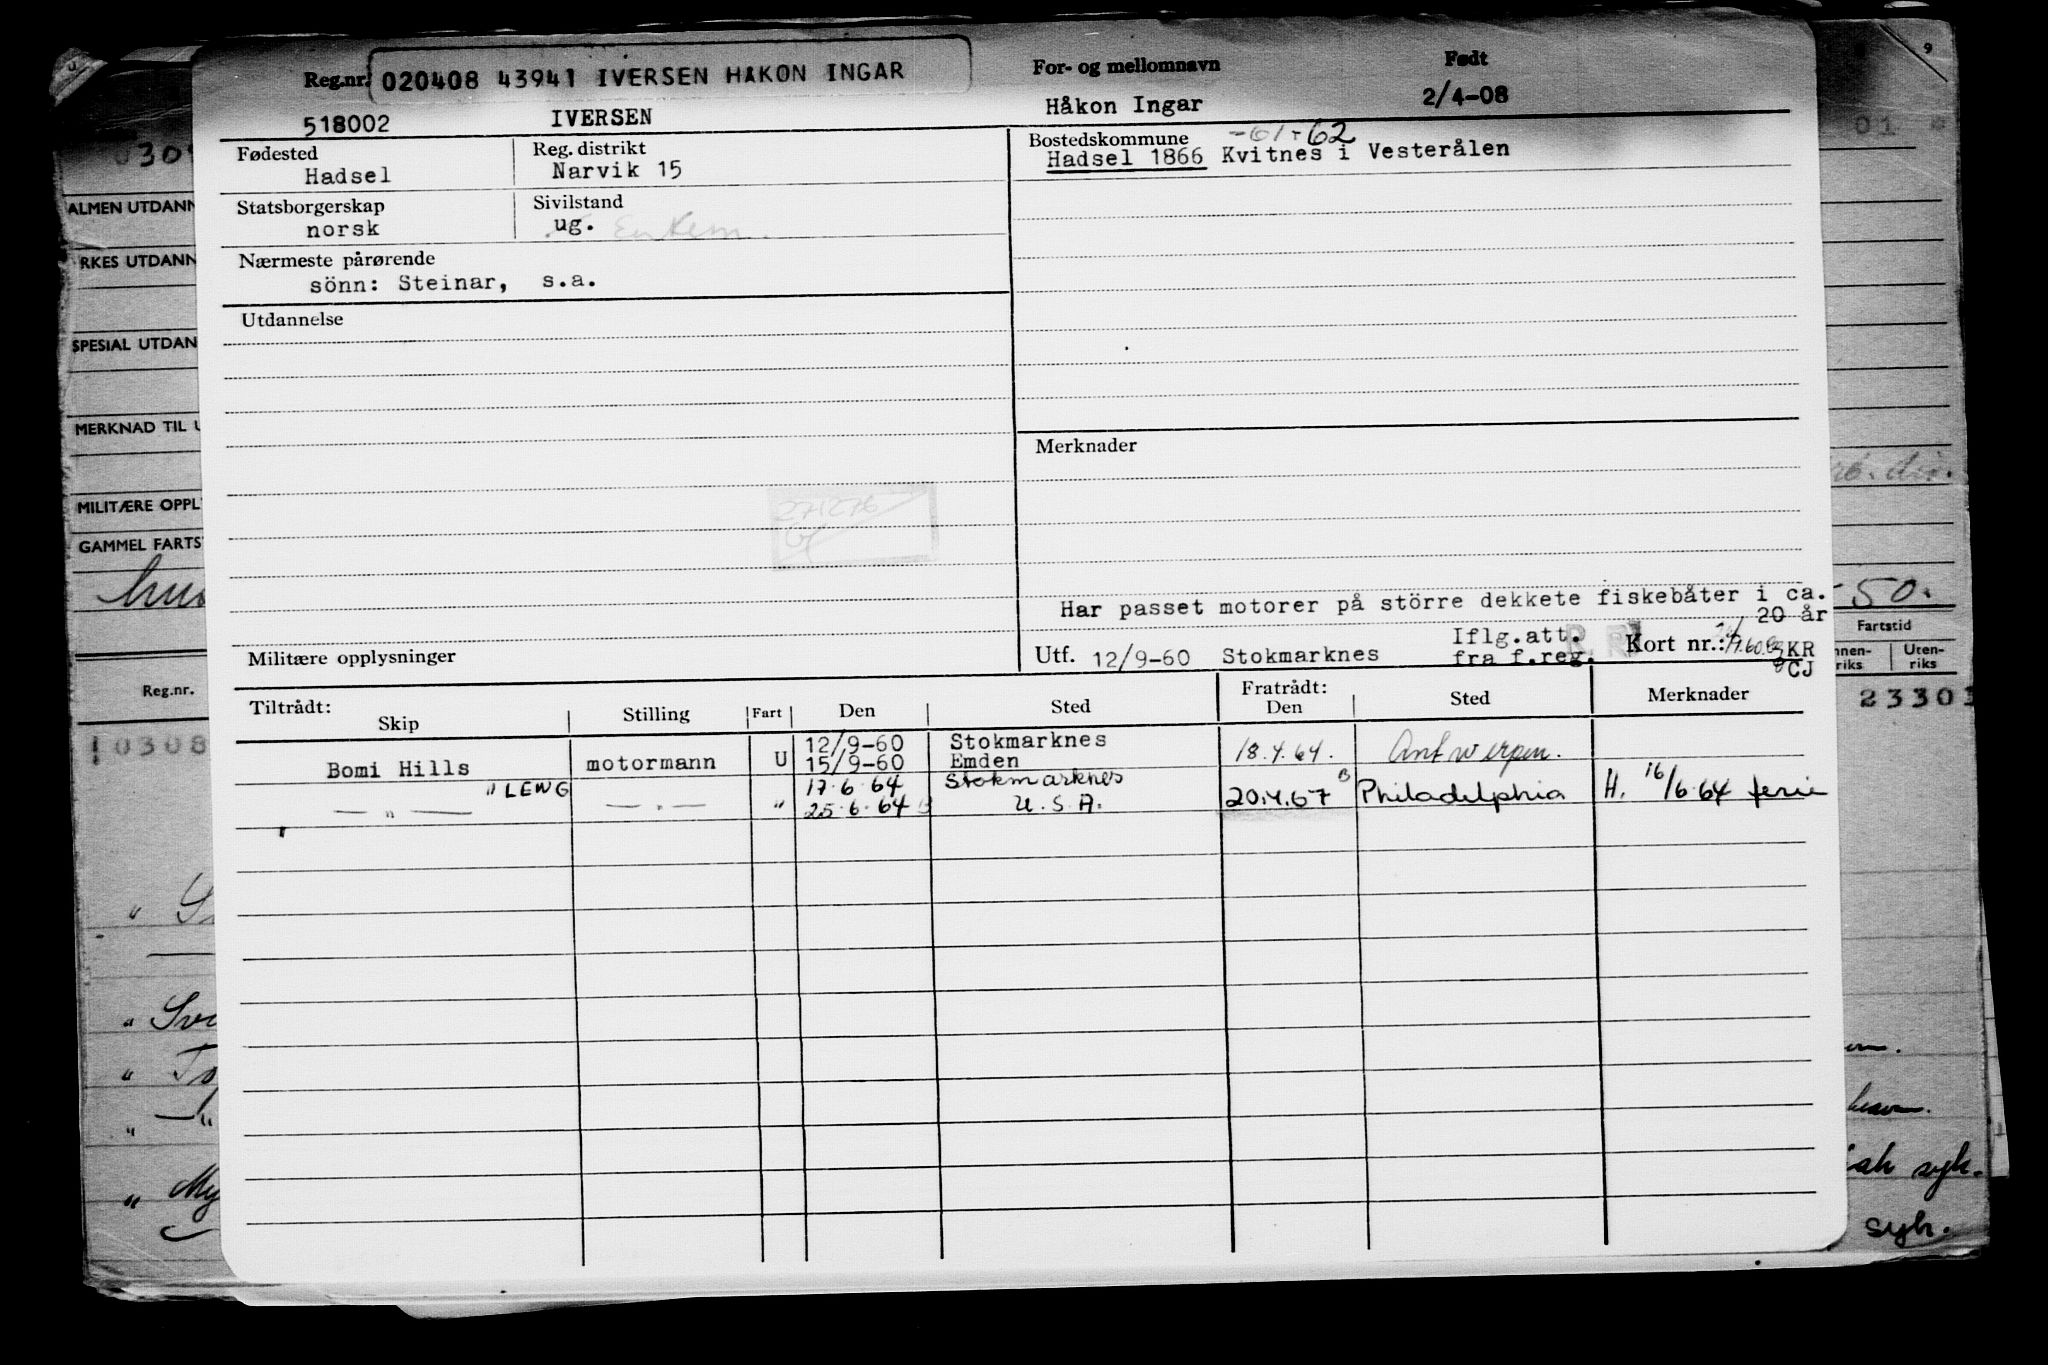 Reg.nr. 020408 43941 IVERSEN HAKON INGAR
For- og mellomnavn
Født
518002 IVERSEN
Håkon Ingar
2/4-08
Fødested
Reg. distrikt
Hadsel
Narvik 15
Bostedskommune -61-62
Hadsel 1866 Kvitnes i Vesterålen
Statsborgerskap
Sivilstand
norsk
ug. Enkem.
Nærmeste pårørende
sönn: Steinar, s.a.
Utdannelse
271276
Merknader
Har passet motorer på större dekkete fiskebåter i ca.
20 år
Militære opplysninger
Iflg.att.
Utf. 12/9-60 Stokmarknes fra f.reg. Kort nr.: KR
CJ
Tiltrådt:
Skip
Stilling
Fart
Den
Sted
Fratrådt:
Den
Sted
Merknader
12/9-60 Stokmarknes
Bomi Hills motormann U 15/9-60 Emden 18.4.64. Antwerpen.
" LEWG 17.6.64 Stokmarknes
— " — — " — " 25.6.64 B U.S.A. 20.4.67 B Philadelphia H. 16/6.64 ferie
ALMEN UTDANN
RKES UTDANN
SPESIAL UTDAN
MERKNAD TIL U
MILITÆRE OPPL
GAMMEL FARTS
Reg.nr.
0308
" Sve
" To
— "
" My
9
01
-50.
Fartstid
nnen-
riks
Uten-
riks
23303
havn.
syk.
syk.